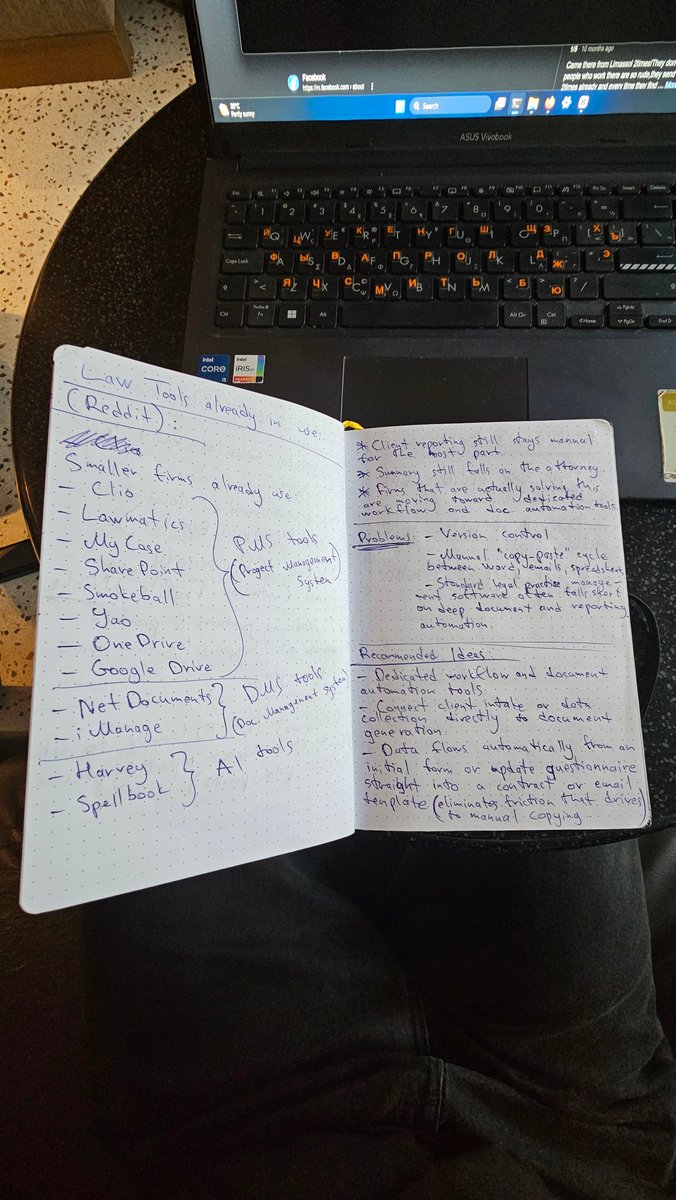 Facebook
https://m.facebook.com › about
1/5 10 months ago
Came there from Limassol 2times!They don
people who work there are so rude,they send
2times already and every time they find ...
30°C
Partly sunny
Search
ASUS Vivobook
intel
CORE
i5
intel
iRIS xe
GRAPHICS
Law Tools already in use
(Reddit):
Smaller firms already use:
- Clio
- Lawmatics
- My Case
- Share Point
- Smokeball
- Yao
- One Drive
- Google Drive
PMS tools
(Project Management
System)
- Net Documents
- i Manage
DMS tools
(Doc. Management System)
- Harvey
- Spellbook
AI tools
* Client reporting still stays manual
for the most part.
* Summary still falls on the attorney.
* Firms that are actually solving this
are moving toward dedicated
workflow and doc. automation tools.
Problems: - Version control
- Manual "copy-paste" cycle
between word, emails, spreadsheet
- Standard legal practice manage-
ment software often falls short
on deep document and reporting
automation.
Recommended Ideas:
- Dedicated workflow and document
automation tools
- Connect client intake or data
collection directly to document
generation.
- Data flows automatically from an
initial form or update questionnaire
straight into a contract or email
template (eliminates friction that drives)
to manual copying...